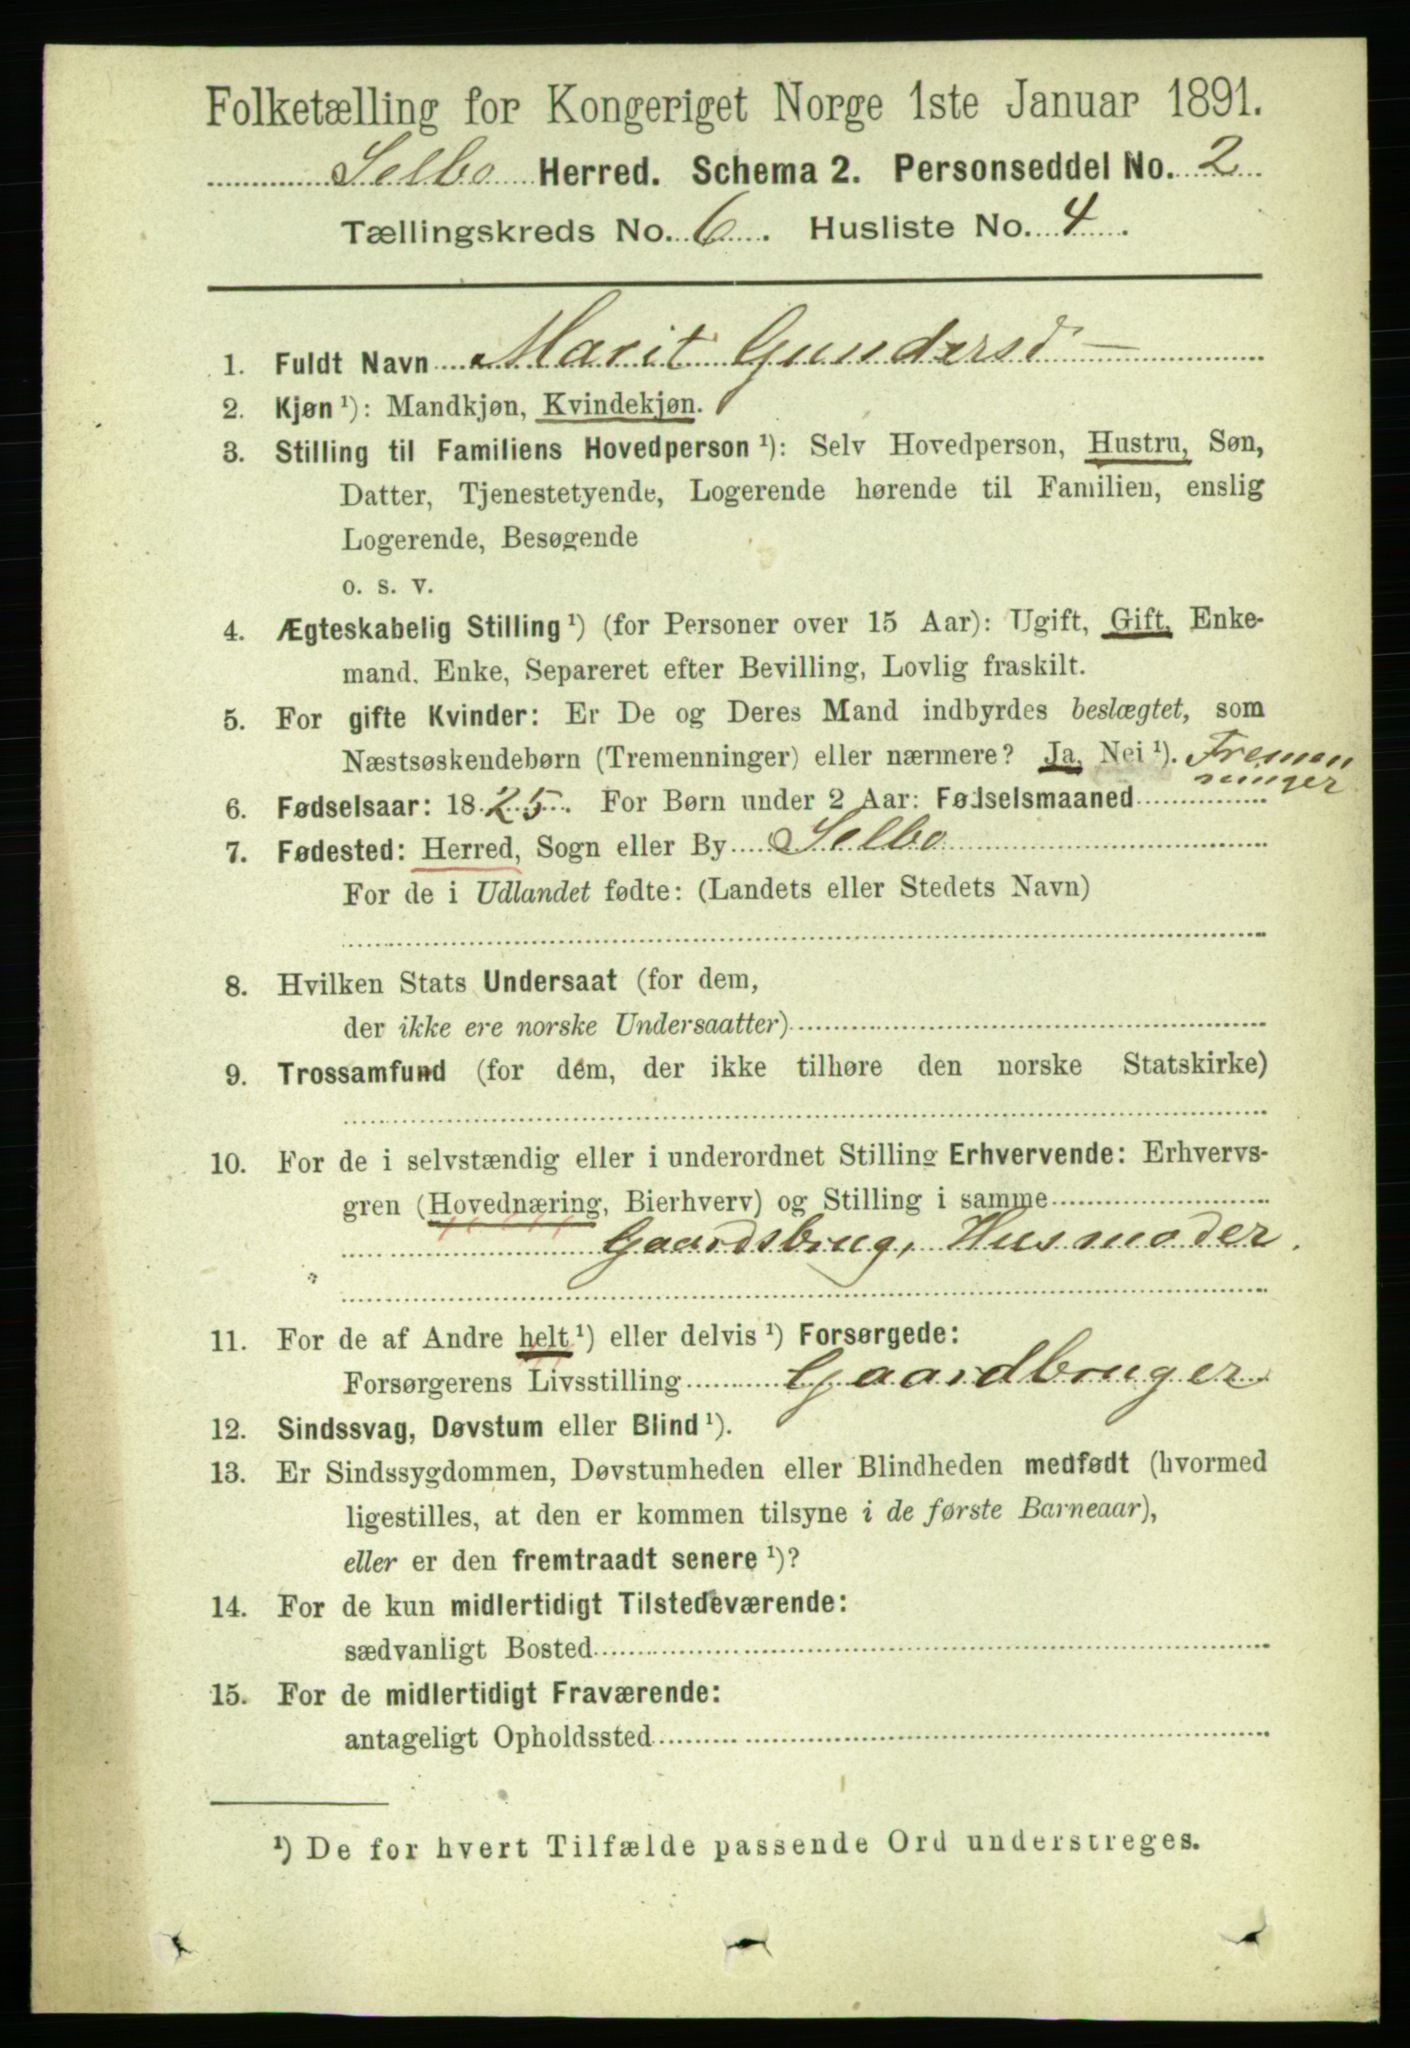 Folketælling for Kongeriget Norge 1ste Januar 1891.
Selbo Herred. Schema 2. Personseddel No. 2
Tællingskreds No. 6. Husliste No. 4.
1. Fuldt Navn Marit Gundersd
2. Kjøn ¹): Mandkjøn, Kvindekjøn.
3. Stilling til Familiens Hovedperson ¹): Selv Hovedperson, Hustru, Søn,
Datter, Tjenestetyende, Logerende hørende til Familien, enslig
Logerende, Besøgende
o. s. v.
4. Ægteskabelig Stilling ¹) (for Personer over 15 Aar): Ugift, Gift, Enke-
mand, Enke, Separeret efter Bevilling, Lovlig fraskilt.
5. For gifte Kvinder: Er De og Deres Mand indbyrdes beslægtet, som
Næstsøskendebørn (Tremenninger) eller nærmere? Ja, Nei ¹). Tremen
ninger
6. Fødselsaar: 1825. For Børn under 2 Aar: Fødselsmaaned
7. Fødested: Herred, Sogn eller By Selbo
For de i Udlandet fødte: (Landets eller Stedets Navn)
8. Hvilken Stats Undersaat (for dem,
der ikke ere norske Undersaatter)
9. Trossamfund (for dem, der ikke tilhøre den norske Statskirke)
10. For de i selvstændig eller i underordnet Stilling Erhvervende: Erhvervs-
gren (Hovednæring, Bierhverv) og Stilling i samme
Gaardsbrug, Husmoder.
11. For de af Andre helt ¹) eller delvis ¹) Forsørgede:
Forsørgerens Livsstilling Gaardbruger
12. Sindssvag, Døvstum eller Blind ¹).
13. Er Sindssygdommen, Døvstumheden eller Blindheden medfødt (hvormed
ligestilles, at den er kommen tilsyne i de første Barneaar),
eller er den fremtraadt senere ¹)?
14. For de kun midlertidigt Tilstedeværende:
sædvanligt Bosted
15. For de midlertidigt Fraværende:
antageligt Opholdssted
¹) De for hvert Tilfælde passende Ord understreges.